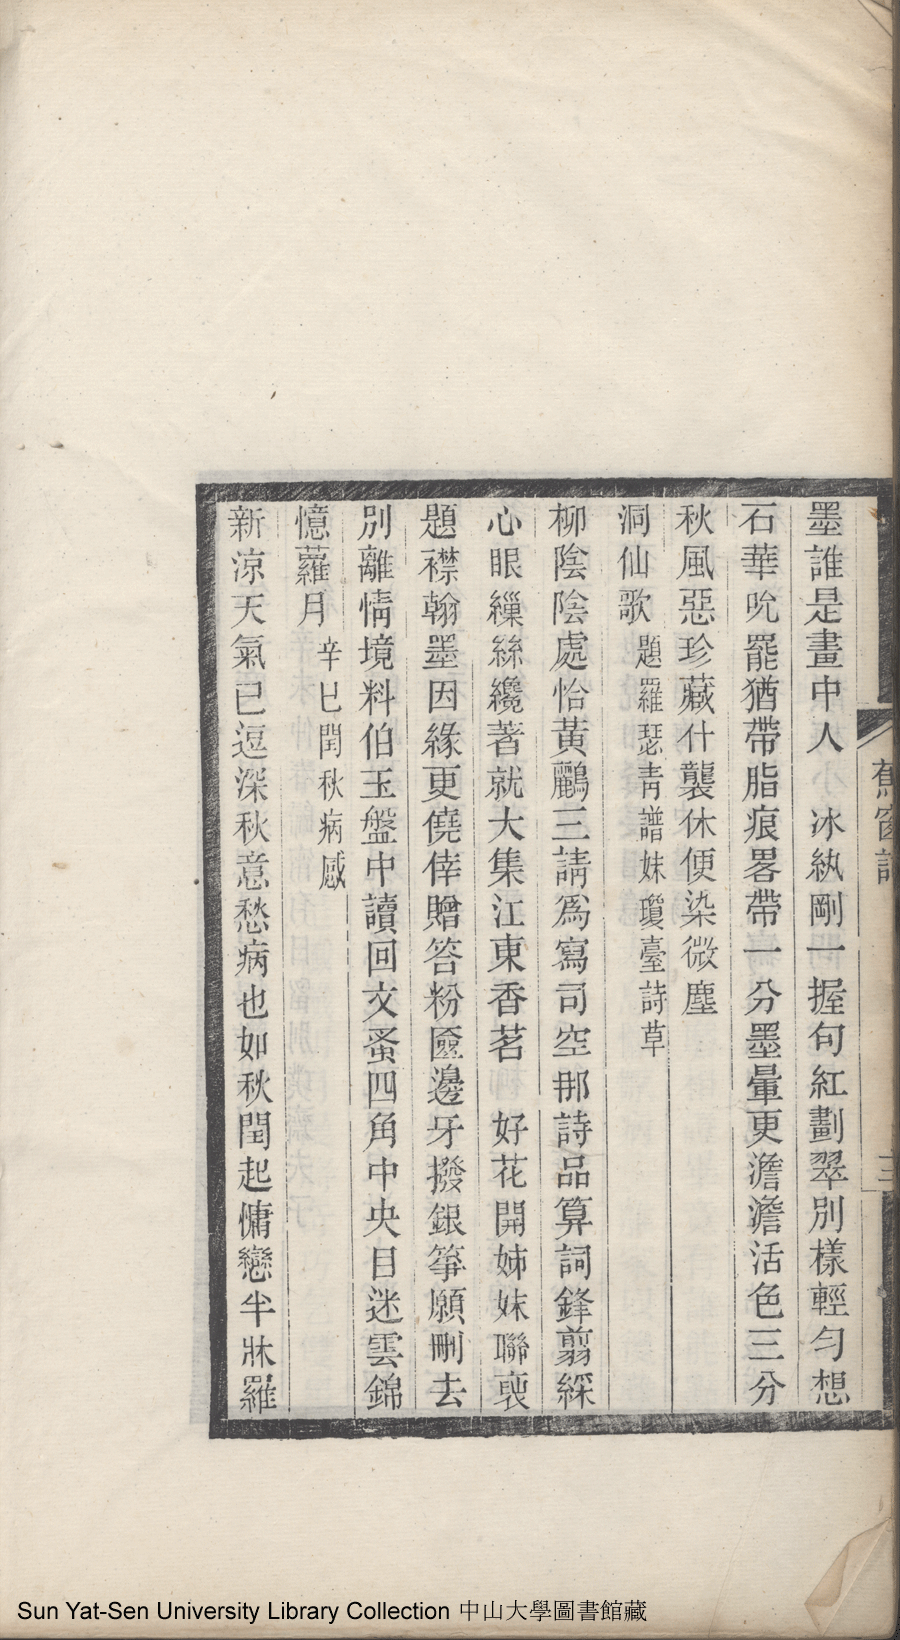 墨誰是畫中人　冰紈剛一握句紅劃翠別樣輕勻想
石華吮罷猶帶脂痕畧帶一分墨暈更澹澹活色三分
秋風惡珍藏什襲休便染微塵
洞仙歌　題羅瑟靑譜妹瓊臺詩草
柳陰陰處恰黃鸝三請爲寫司空冊詩品算詞鋒翦綵
心眼繅絲纔著就大集江東香茗　好花開姊妹聯裒
題襟翰墨因緣更僥倖贈答粉匳邊牙撥銀箏願刪去
別離情境料伯玉盤中讀回文蚤四角中央目迷雲錦
憶蘿月　辛巳閏秋病感
新涼天氣已逗深秋意愁病也如秋閏起慵戀半牀羅
蕉窗詞
三
Sun Yat-Sen University Library Collection 中山大學圖書館藏